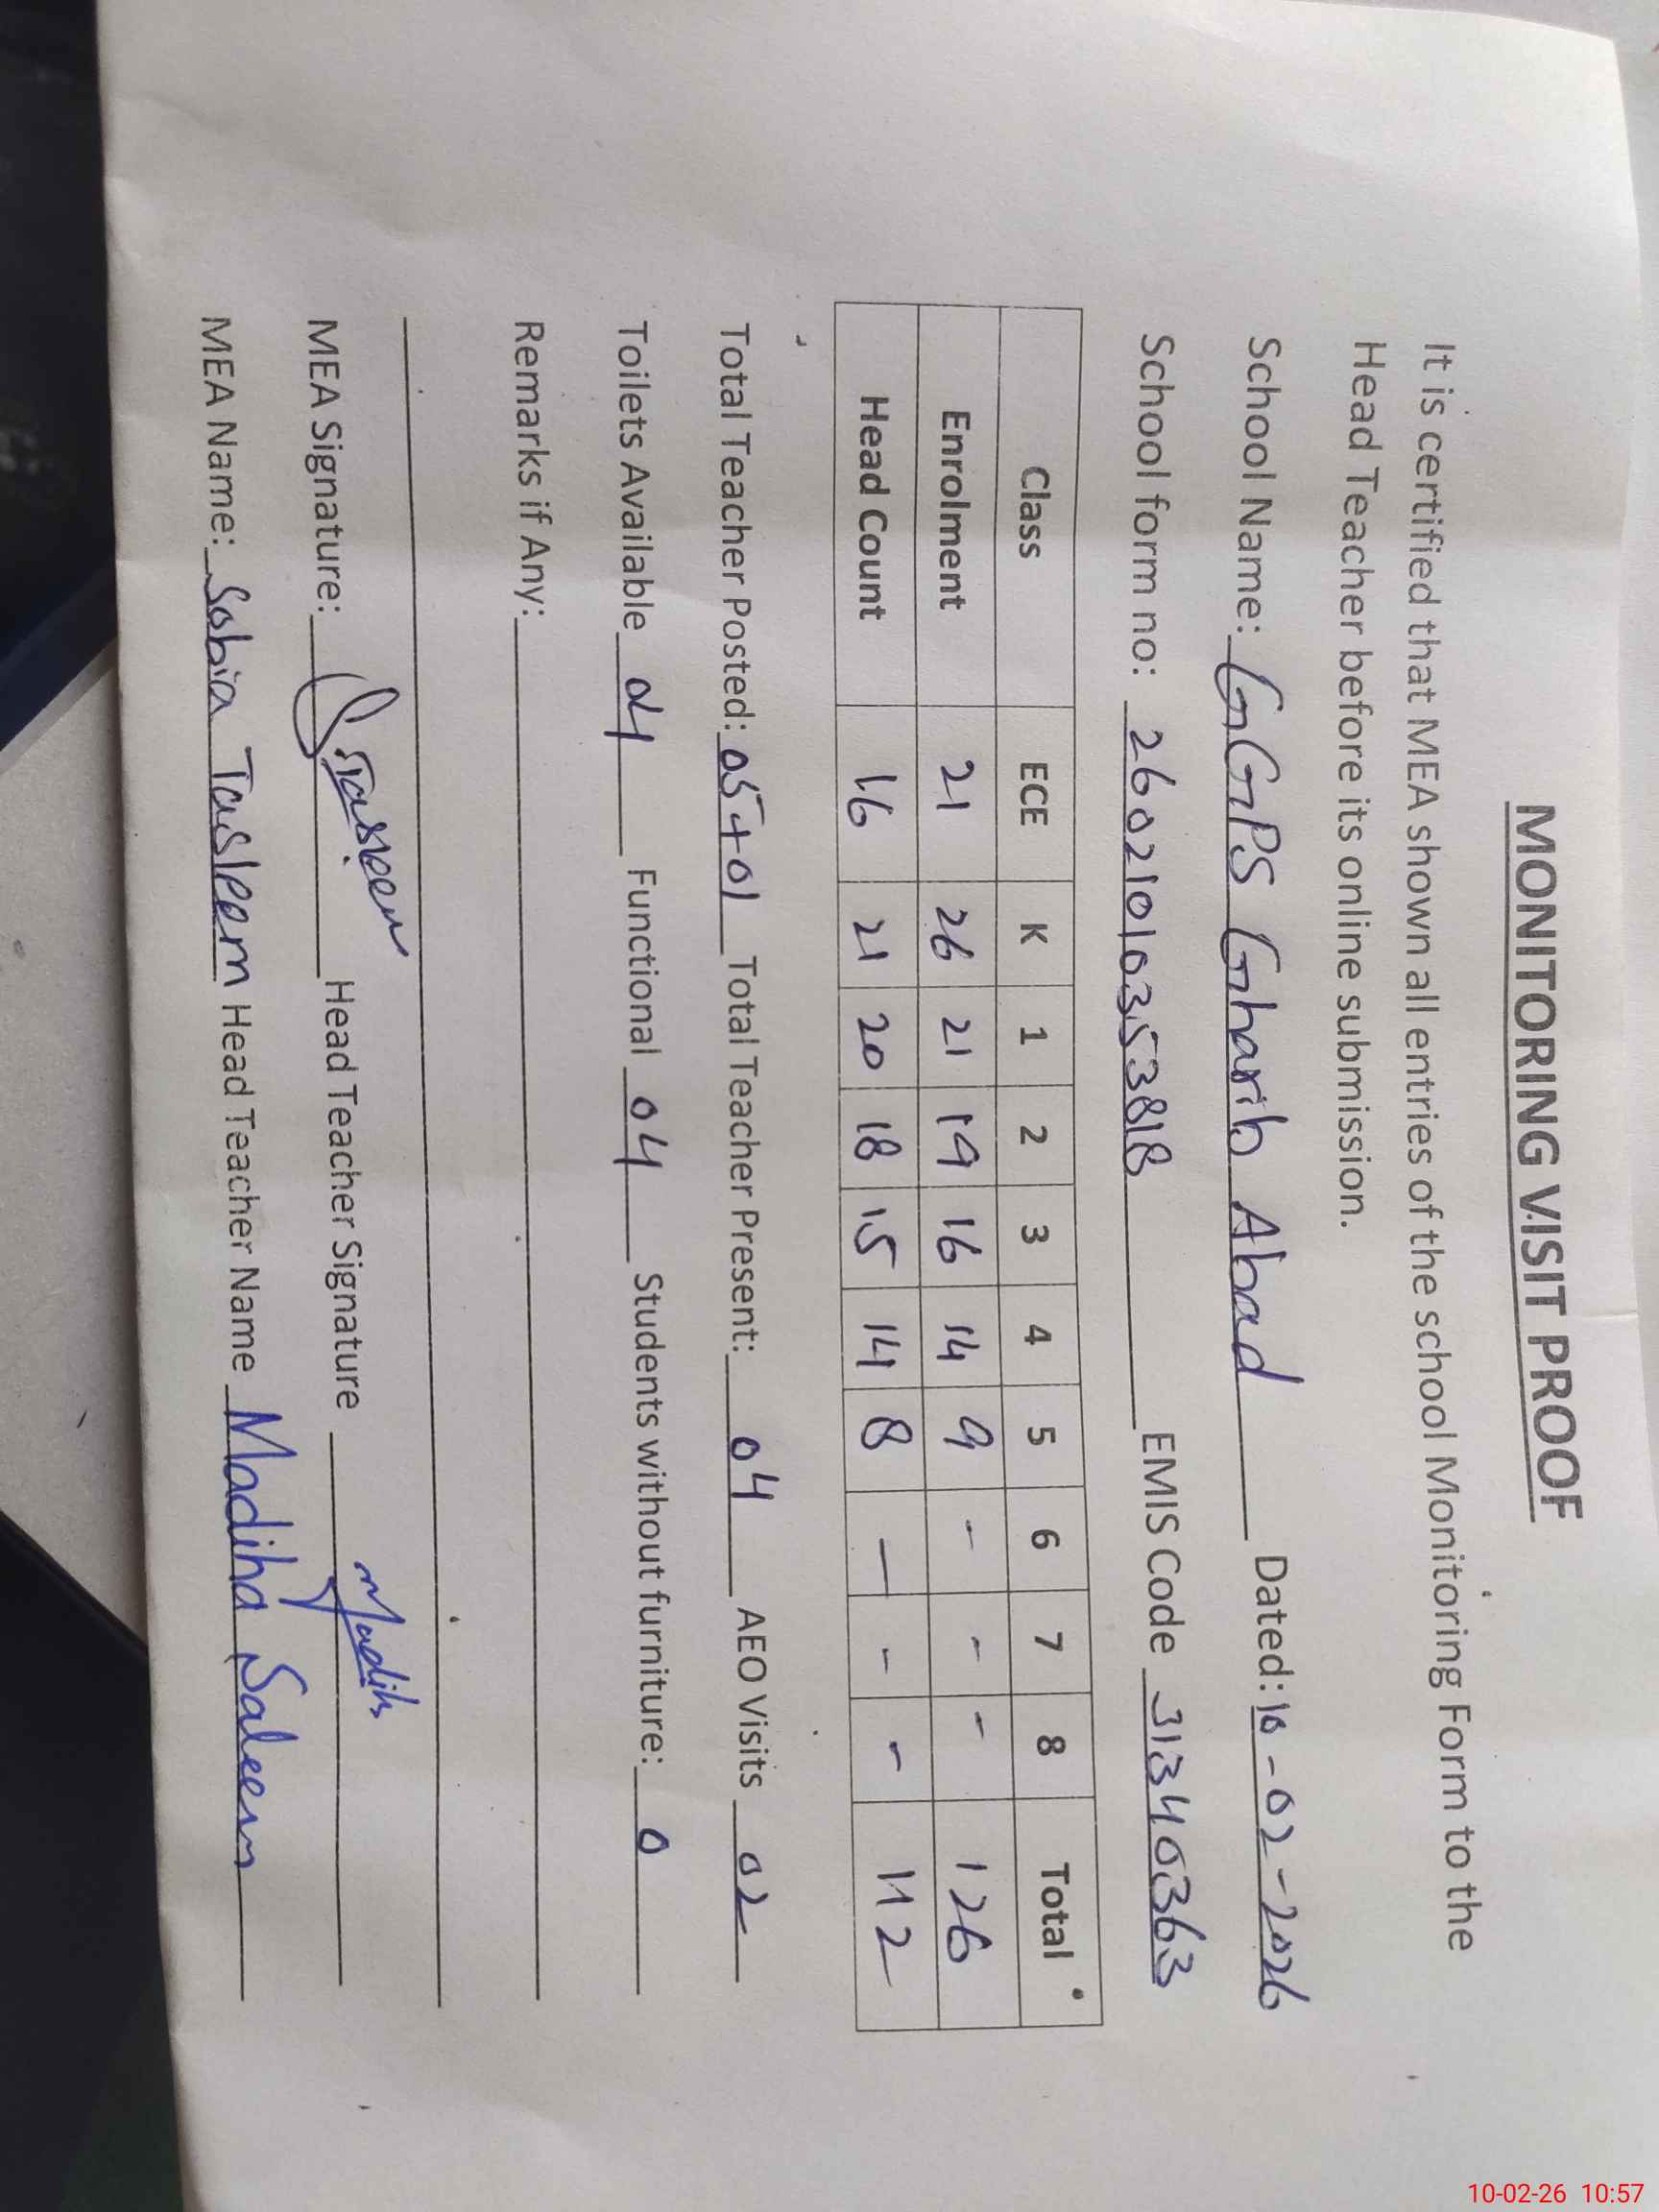 MONITORING VISIT PROOF
It is certified that MEA shown all entries of the school Monitoring Form to the
Head Teacher before its online submission.
School Name: GGPS Gharib Abad Dated: 10-02-2026
School form no: 26021010353818 EMIS Code 31340363
Class ECE K 1 2 3 4 5 6 7 8 Total
Enrolment 21 26 21 19 16 14 9 - - - 126
Head Count 16 21 20 18 15 14 8 - - - 112
Total Teacher Posted: 05+01 Total Teacher Present: 04 AEO Visits 02
Toilets Available 04 Functional 04 Students without furniture: 0
Remarks if Any:
MEA Signature: Tasleem Head Teacher Signature Madiha
MEA Name: Sobia Tasleem Head Teacher Name Madiha Saleem
10-02-26 10:57